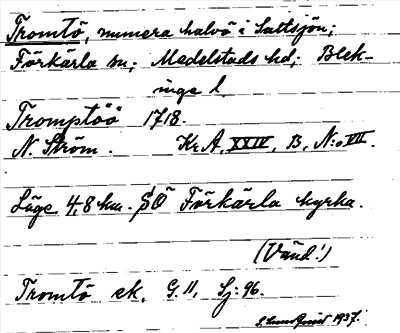 Tromtö, numera halvö i Saltsjön;
Förkärla sn; Medelstads hd; Blek-
inge l.
Tromptöö 1718.
N. Ström. Kr.A, XXIV, B, N:o VII.
Läge 4,8 km. SÖ Förkärla kyrka.
(Vänd!)
Tromtö ek. G. 11, Sj: 96.
1937.